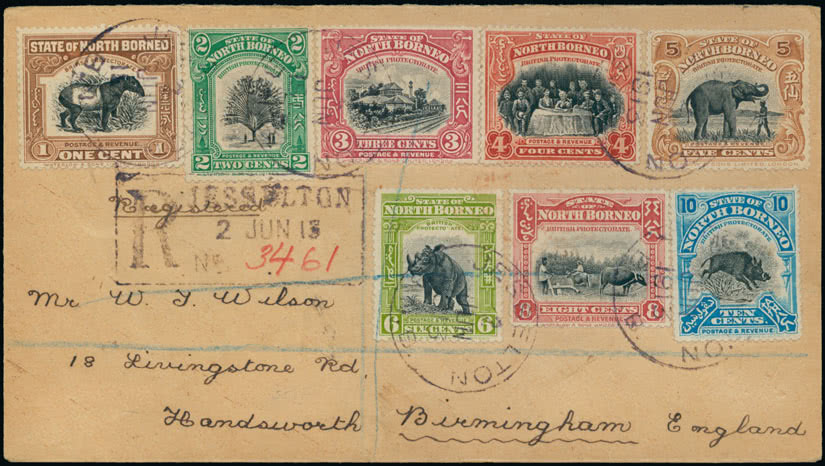 STATE OF NORTH BORNEO
BRITISH PROTECTORATE
POSTAGE & REVENUE
1 ONE CENT 1
2 2
STATE OF
NORTH BORNEO
BRITISH PROTECTORATE
POSTAGE & REVENUE
2 TWO CENTS 2
STATE OF
NORTH BORNEO
BRITISH PROTECTORATE
POSTAGE & REVENUE
3 THREE CENTS 3
STATE OF
NORTH BORNEO
BRITISH PROTECTORATE
POSTAGE & REVENUE
4 FOUR CENTS 4
5 STATE OF 5
NORTH BORNEO
BRITISH PROTECTORATE
五仙
POSTAGE & REVENUE
FIVE CENTS
Registered
R JESSELTON
2 JUN 13
No 3461
STATE OF
NORTH BORNEO
BRITISH
PROTECTORATE
POSTAGE & REVENUE
6 SIX CENTS 6
STATE OF
NORTH BORNEO
BRITISH PROTECTORATE
8 EIGHT CENTS 8
POSTAGE & REVENUE
10 STATE OF 10
NORTH BORNEO
BRITISH PROTECTORATE
TEN
CENTS
POSTAGE & REVENUE
Mr W. J. Wilson
18 Livingstone Rd.
Handsworth Birmingham England